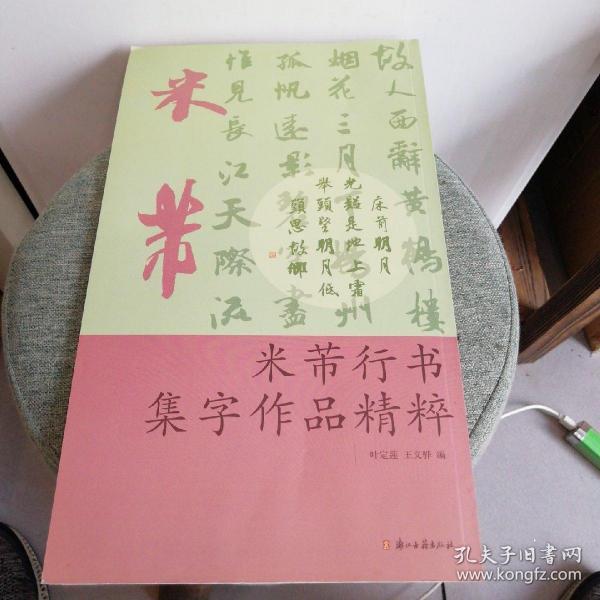 米芾
故人西辭黄鶴樓
烟花三月下揚州
孤帆遠影碧空盡
惟見長江天際流
床前明月
光疑是地上霜
舉頭望明月低
頭思故鄉
米芾行书
集字作品精粹
叶定莲 王文骅 编
浙江古籍出版社
孔夫子旧书网
www.kongfz.com